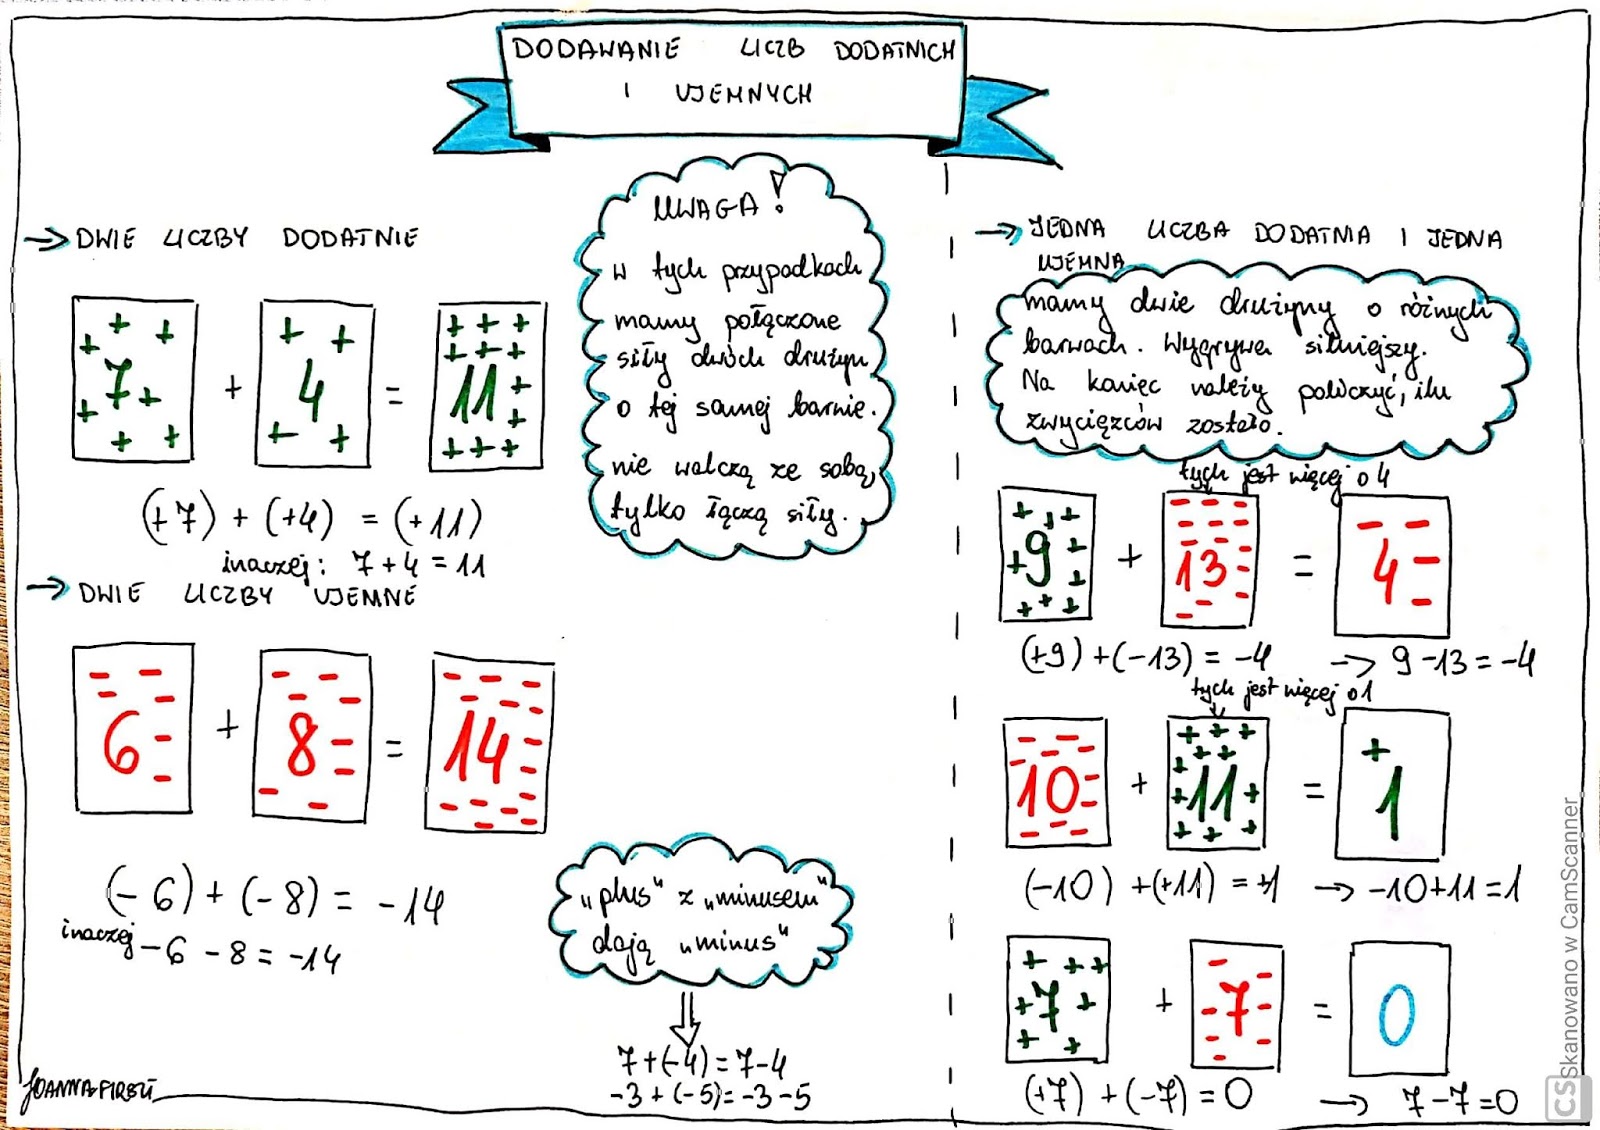 DODAWANIE LICZB DODATNICH
I UJEMNYCH
→ DWIE LICZBY DODATNIE
7 + 4 = 11
(+7) + (+4) = (+11)
inaczej: 7+4=11
→ DWIE LICZBY UJEMNE
6 + 8 = 14
(-6) + (-8) = -14
inaczej -6 -8 = -14
UWAGA!
w tych przypadkach
mamy połączone
siły dwóch drużyn
o tej samej barwie.
nie walczą ze sobą,
tylko łączą siły.
„plus" z „minusem"
dają „minus"
7+(-4)=7-4
-3+(-5)=-3-5
→ JEDNA LICZBA DODATNIA I JEDNA
UJEMNA
mamy dwie drużyny o różnych
barwach. Wygrywa silniejszy.
Na koniec należy policzyć, ilu
zwycięzców zostało.
tych jest więcej o 4
9 + 13 = 4
(+9)+(-13) = -4 → 9-13=-4
tych jest więcej o 1
10 + 11 = 1
(-10) +(+11) = +1 → -10+11=1
7 + 7 = 0
(+7) + (-7) = 0 → 7-7=0
CS Skanowano w CamScanner